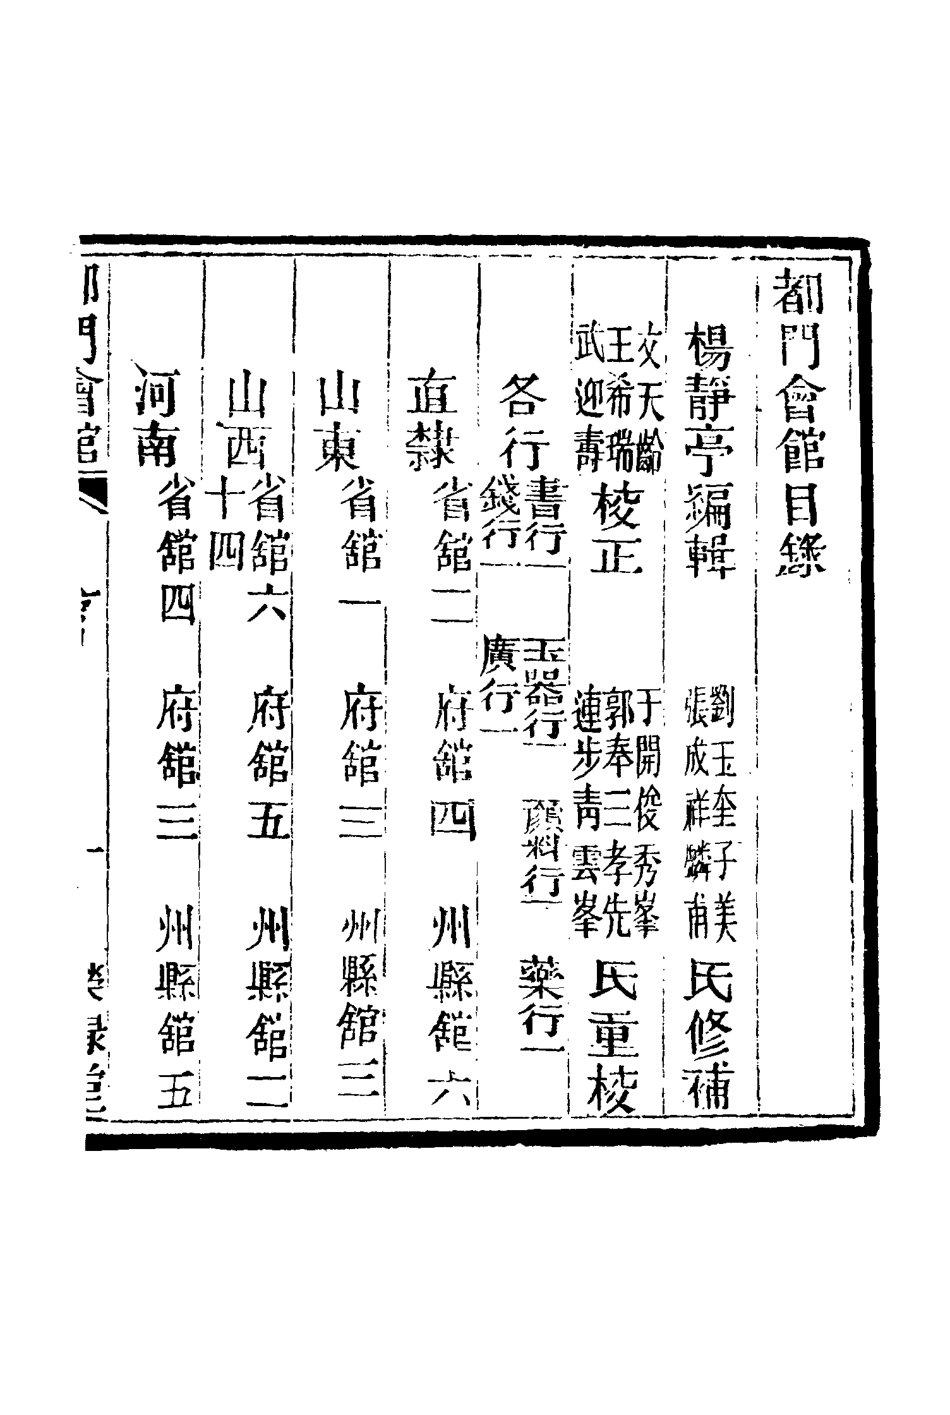 都門會館目錄
楊靜亭編輯 劉玉奎子美 張成祥麟甫 氏修補
文天齡 王希瑞 武迎壽 校正 于開俊秀峯 郭奉三孝先 連步青雲峯 氏重校
各行 書行一 錢行一 玉器行一 廣行一 顏料行一 藥行一
直隸 省舘二 府舘四 州縣舘六
山東 省舘一 府舘三 州縣舘三
山西 省舘六 十四 府舘五 州縣舘二
河南 省舘四 府舘三 州縣舘五
都門會館 一